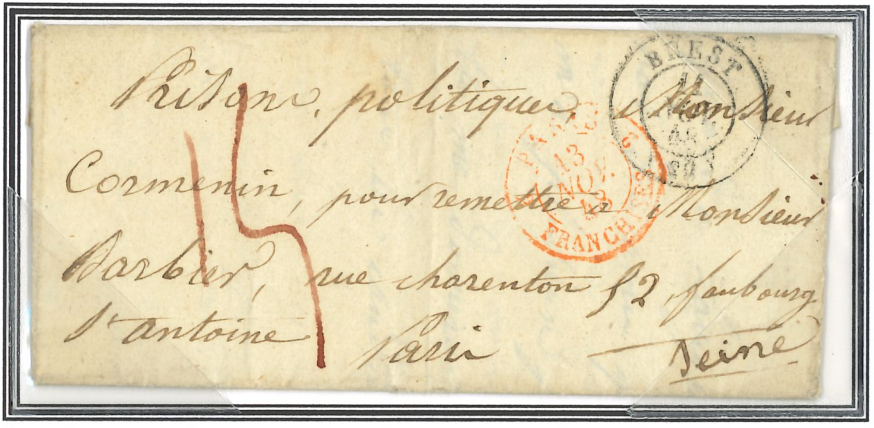 Prisone, politique, Monsieur
Cormenin, pour remettre a Monsieur
Barbier, rue charenton 52, faubourg
St antoine Paris Seine
15
BREST
11
48
(28)
PARIS 2
13
NOV.
48
FRANCHISES